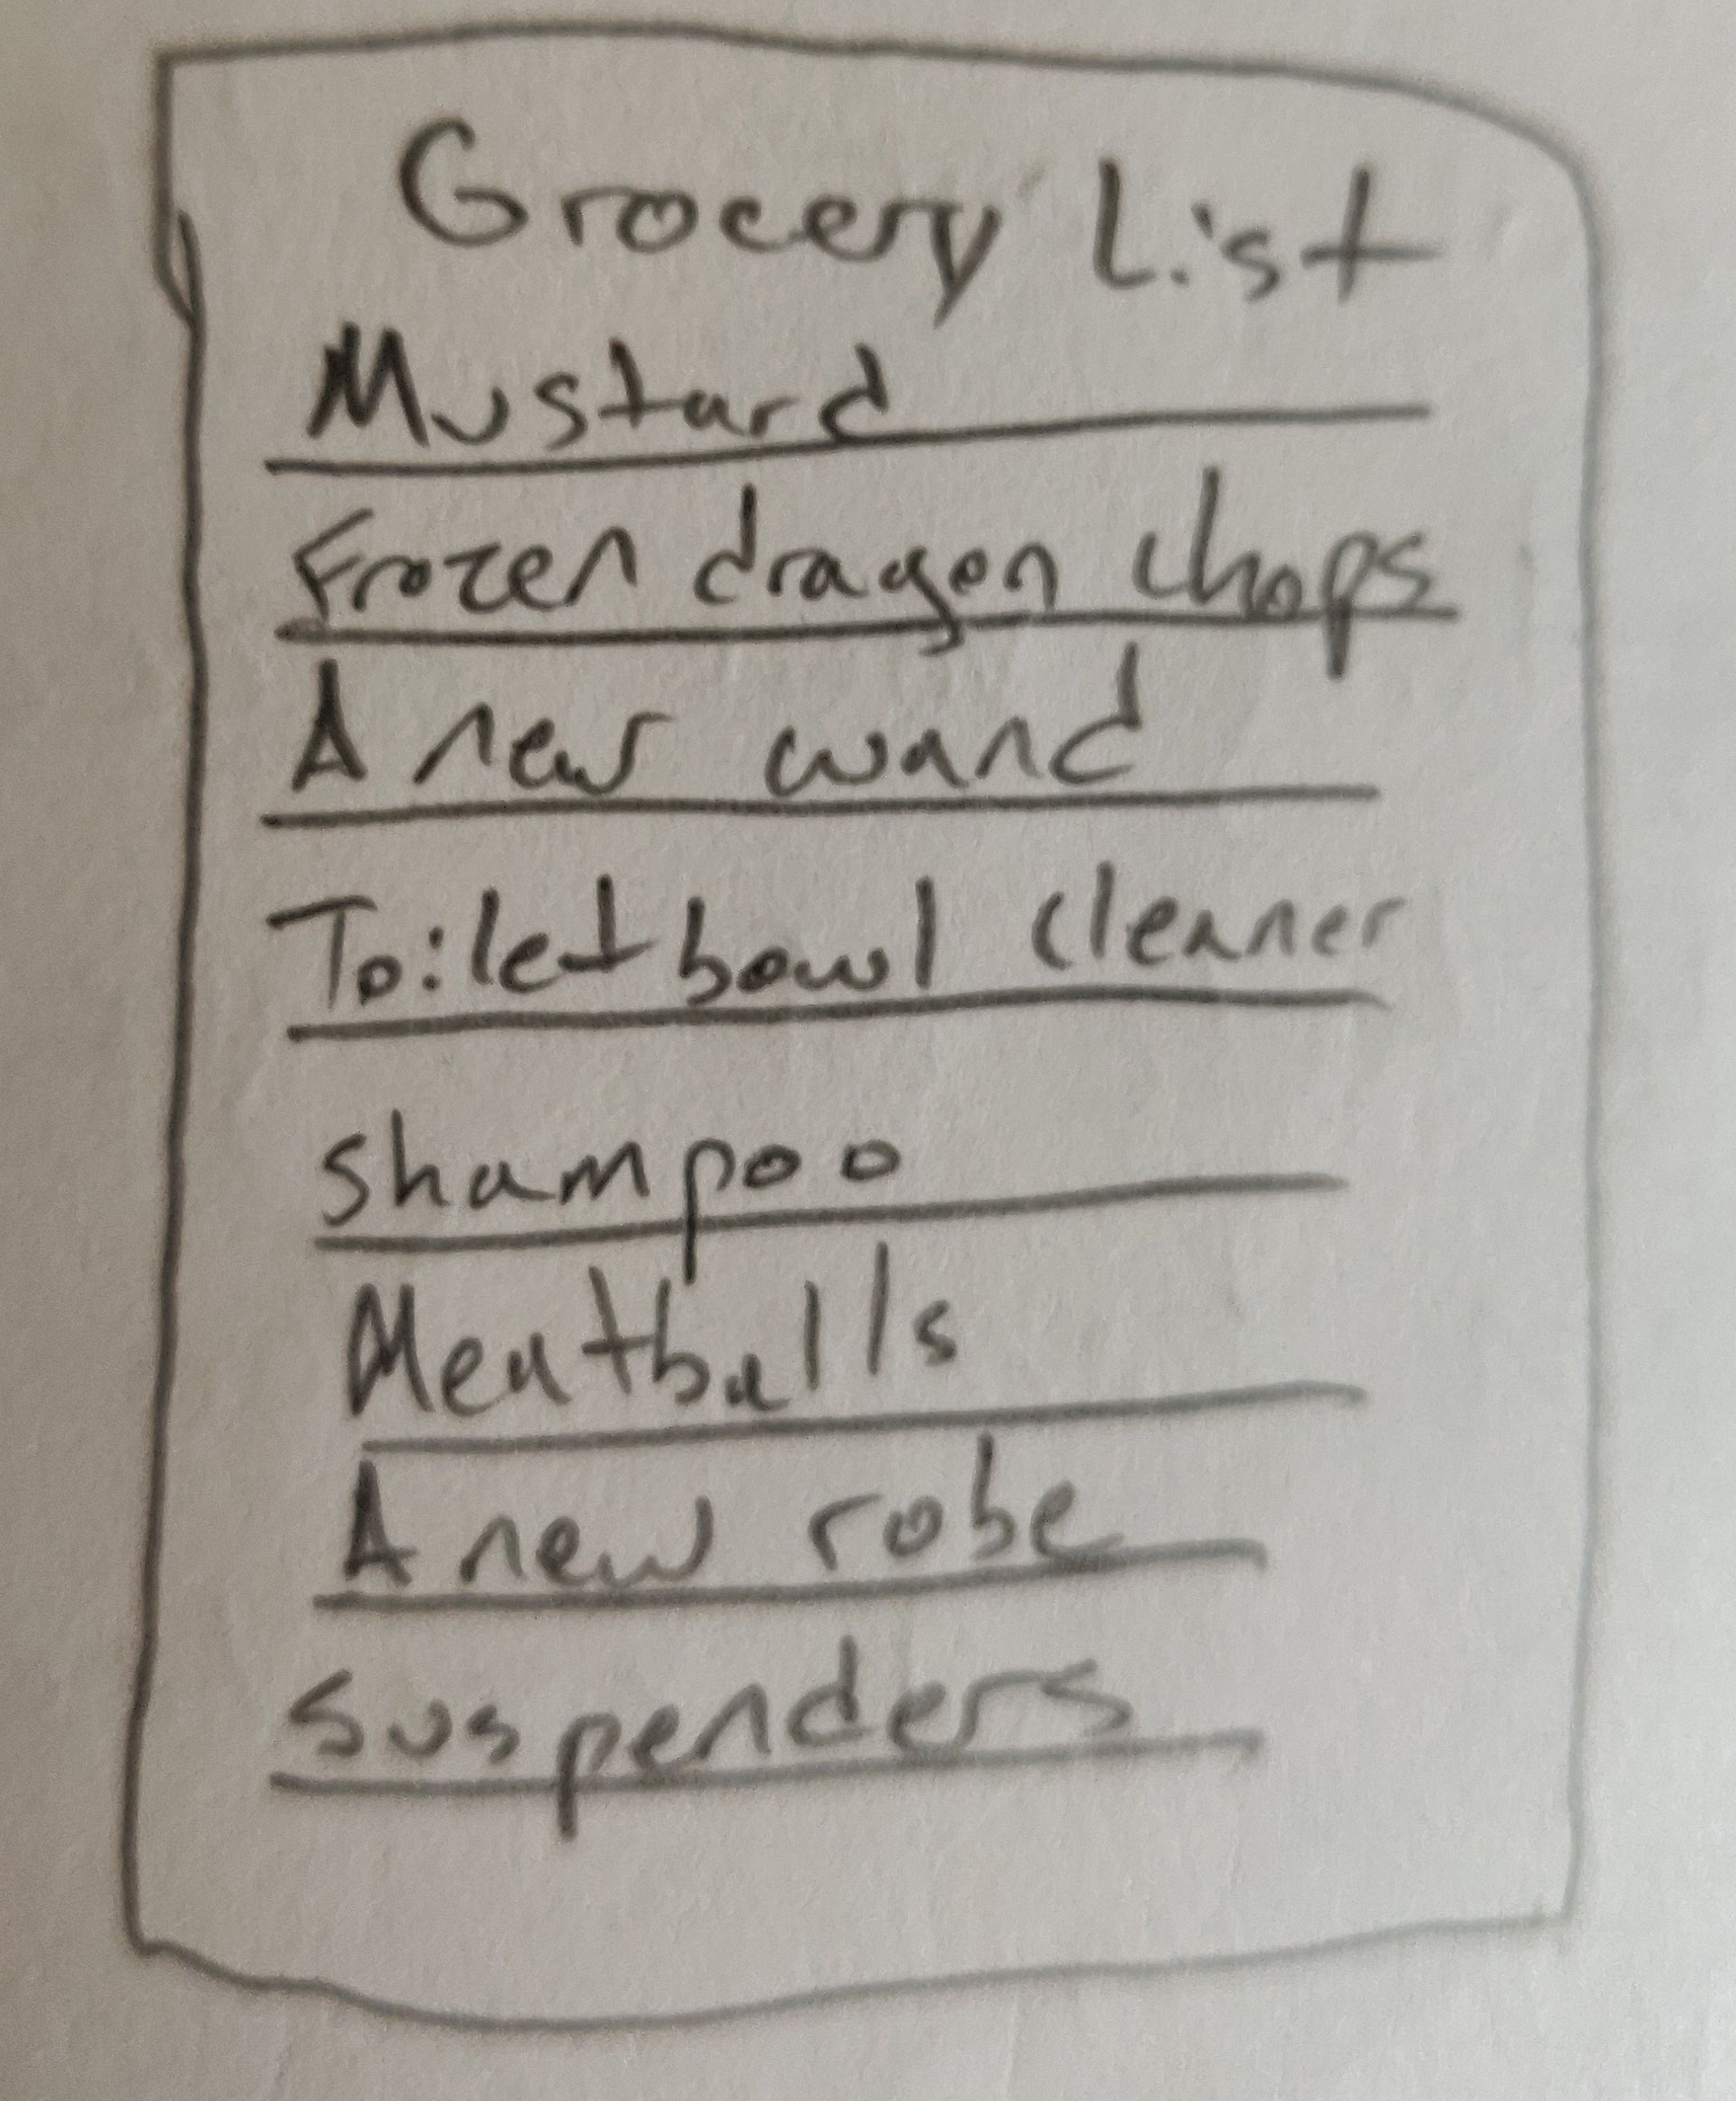 Grocery List
Mustard
Frozen dragon chops
A new wand
Toilet bowl cleaner
shampoo
Meatballs
A new robe
suspenders